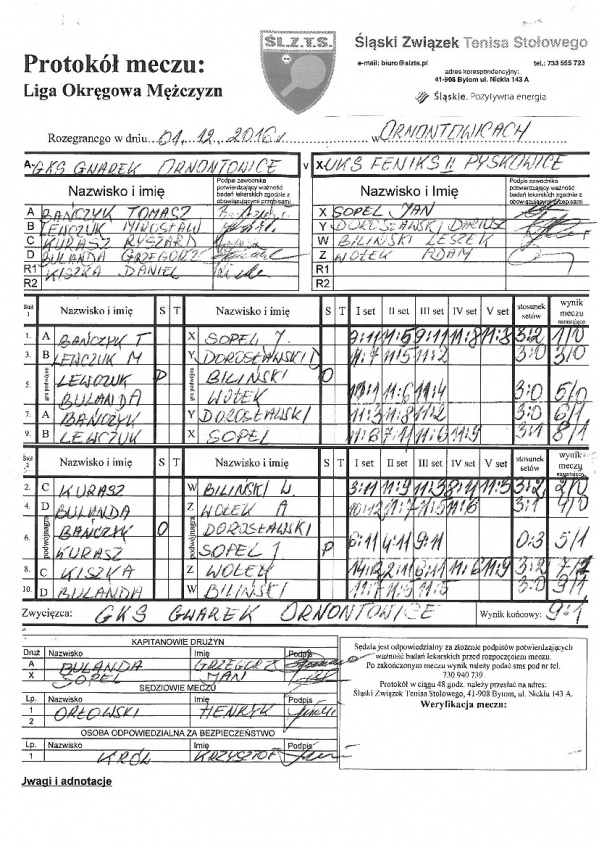 ŚL.Z.T.S.
Śląski Związek Tenisa Stołowego
e-mail: biuro@slzts.pl tel.: 733 555 723
adres korespondencyjny:
41-908 Bytom ul. Nickla 143 A
Śląskie. Pozytywna energia
Protokół meczu:
Liga Okręgowa Mężczyzn
Rozegranego w dniu 01.12.2016r w ORNONTOWICACH
A- GKS GWAREK ORNONTOWICE v X- UKS FENIKS II PYSKOWICE
Nazwisko i imię Podpis zawodnika potwierdzający ważność badań lekarskich zgodnie z obowiązującymi przepisami Nazwisko i Imię Podpis zawodnika potwierdzający ważność badań lekarskich zgodnie z obowiązującymi przepisami
A BAŃCZYK TOMASZ X SOPEL JAN
B LEWCZUK MIROSŁAW Y DOROSŁAWSKI DARIUSZ
C KURASZ RYSZARD W BILIŃSKI LESZEK
D BULANDA GRZEGORZ Z WOŁEK ADAM
R1 KISZKA DANIEL R1
R2 R2
Stół 1 Nazwisko i imię S T Nazwisko i imię S T I set II set III set IV set V set stosunek setów wynik meczu narastająco
1. A BAŃCZYK T X SOPEL J. 9:11 11:5 9:11 11:8 11:8 3:2 1/0
3. B LEWCZUK M Y DOROSŁAWSKI D 11:7 11:5 11:2 3:0 3/0
5. gra podwójna LEWCZUK P BILIŃSKI O
BULANDA WOŁEK 11:1 11:6 11:4 3:0 5/0
7. A BAŃCZYK Y DOROSŁAWSKI 11:3 11:8 11:2 3:0 6/1
9. B LEWCZUK X SOPEL 11:6 7:11 11:6 11:9 3:1 8/1
Stół 2 Nazwisko i imię S T Nazwisko i imię S T I set II set III set IV set V set stosunek setów wynik meczu narastająco
2. C KURASZ W BILIŃSKI L 3:11 11:9 3:2 2/0
4. D BULANDA Z WOŁEK A 10:12 11:7 11:5 11:6 3:1 4/0
6. podwójna BAŃCZYK O DOROSŁAWSKI
KURASZ SOPEL J P 6:11 4:11 9:11 0:3 5/1
8. C KISZKA Z WOŁEK 14:12 2:11 6:11 11:6 11:9 3:2 7/1
10. D BULANDA W BILIŃSKI 11:7 11:5 11:5 3:0 9/1
Zwycięzca: GKS GWAREK ORNONTOWICE Wynik końcowy: 9:1
KAPITANOWIE DRUŻYN
Druż Nazwisko Imię Podpis
A BULANDA GRZEGORZ
X SOPEL JAN
SĘDZIOWIE MECZU
Lp. Nazwisko Imię Podpis
1 ORŁOWSKI HENRYK
2
OSOBA ODPOWIEDZIALNA ZA BEZPIECZEŃSTWO
Lp. Nazwisko Imię Podpis
1 KRÓL KRZYSZTOF
Sędzia jest odpowiedzialny za złożenie podpisów potwierdzających
ważność badań lekarskich przed rozpoczęciem meczu.
Po zakończonym meczu wynik należy podać sms pod nr tel.
730 940 739.
Protokół w ciągu 48 godz. należy przesłać na adres:
Śląski Związek Tenisa Stołowego, 41-908 Bytom, ul. Nickla 143 A.
Weryfikacja meczu:
Uwagi i adnotacje